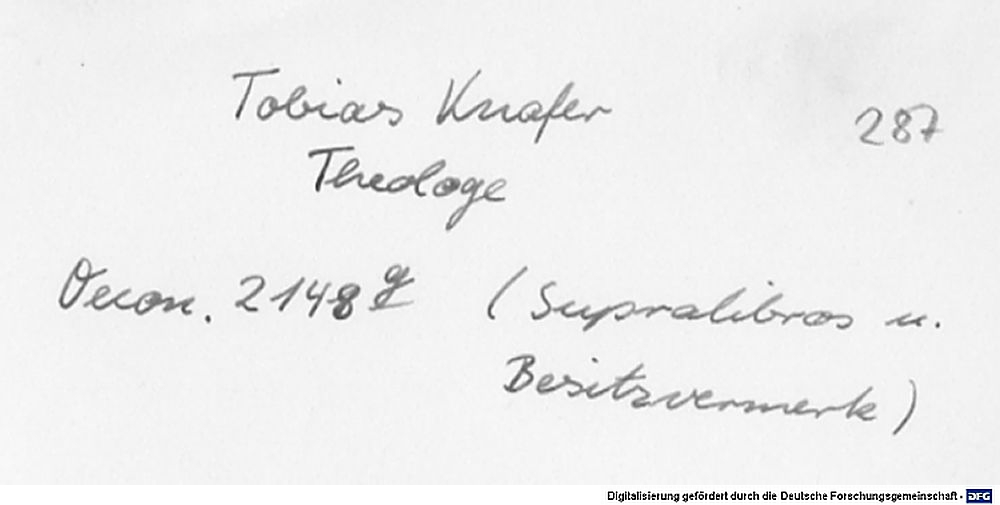 Tobias Knafer 287
Theologe
Oecon. 2148 g (Supralibros u.
Besitzvermerk)
Digitalisierung gefördert durch die Deutsche Forschungsgemeinschaft - DFG